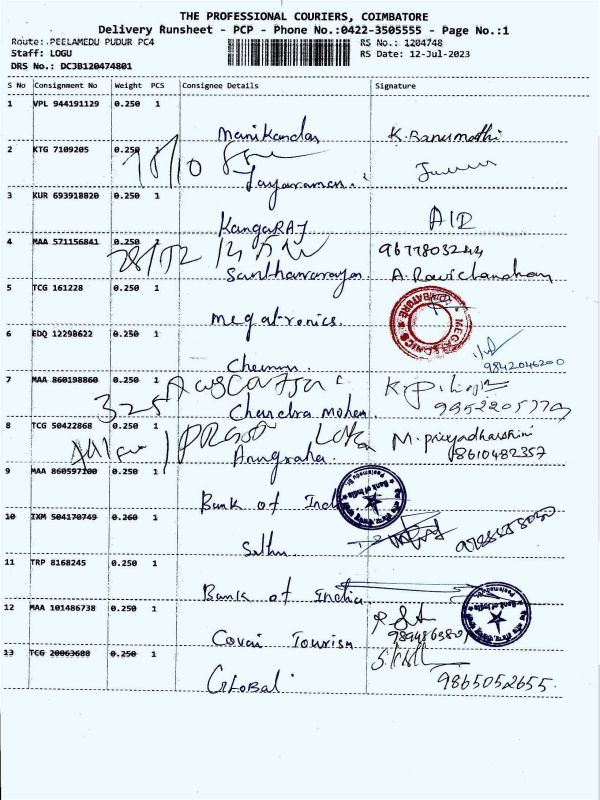 THE PROFESSIONAL COURIERS, COIMBATORE
Delivery Runsheet - PCP - Phone No.:0422-3505555 - Page No.:1
Route: PEELAMEDU PUDUR PC4
RS No.: 1204748
Staff: LOGU
RS Date: 12-Jul-2023
DRS No.: DCJB120474801
S No Consignment No Weight PCS Consignee Details Signature
1 VPL 944191129 0.250 1
Manikandan K. Banumathi
2 KTG 7109205 0.250 1
Jayaraman
3 KUR 693918820 0.250 1
KangaRAJ
4 MAA 571156841 0.250
9677803244
Santhanarayan A. Ravichandran
5 TCG 161228 0.250 1
Megatronics.
6 EDQ 12298622 0.250 1
9842046200
7 MAA 860198860 0.250 1
325
Chandra Mohan
8 TCG 50422868 0.250 1
M. Priyadharshini
Anugraha. 8610482357
9 MAA 860597100 0.250 1
Bank of India
10 IXM 504170749 0.260 1
11 TRP 8168245 0.250 1
Bank of India
12 MAA 101486738 0.250 1
Covai Tourism
13 TCG 20063688 0.250 1
GLOBAL 9865052655.